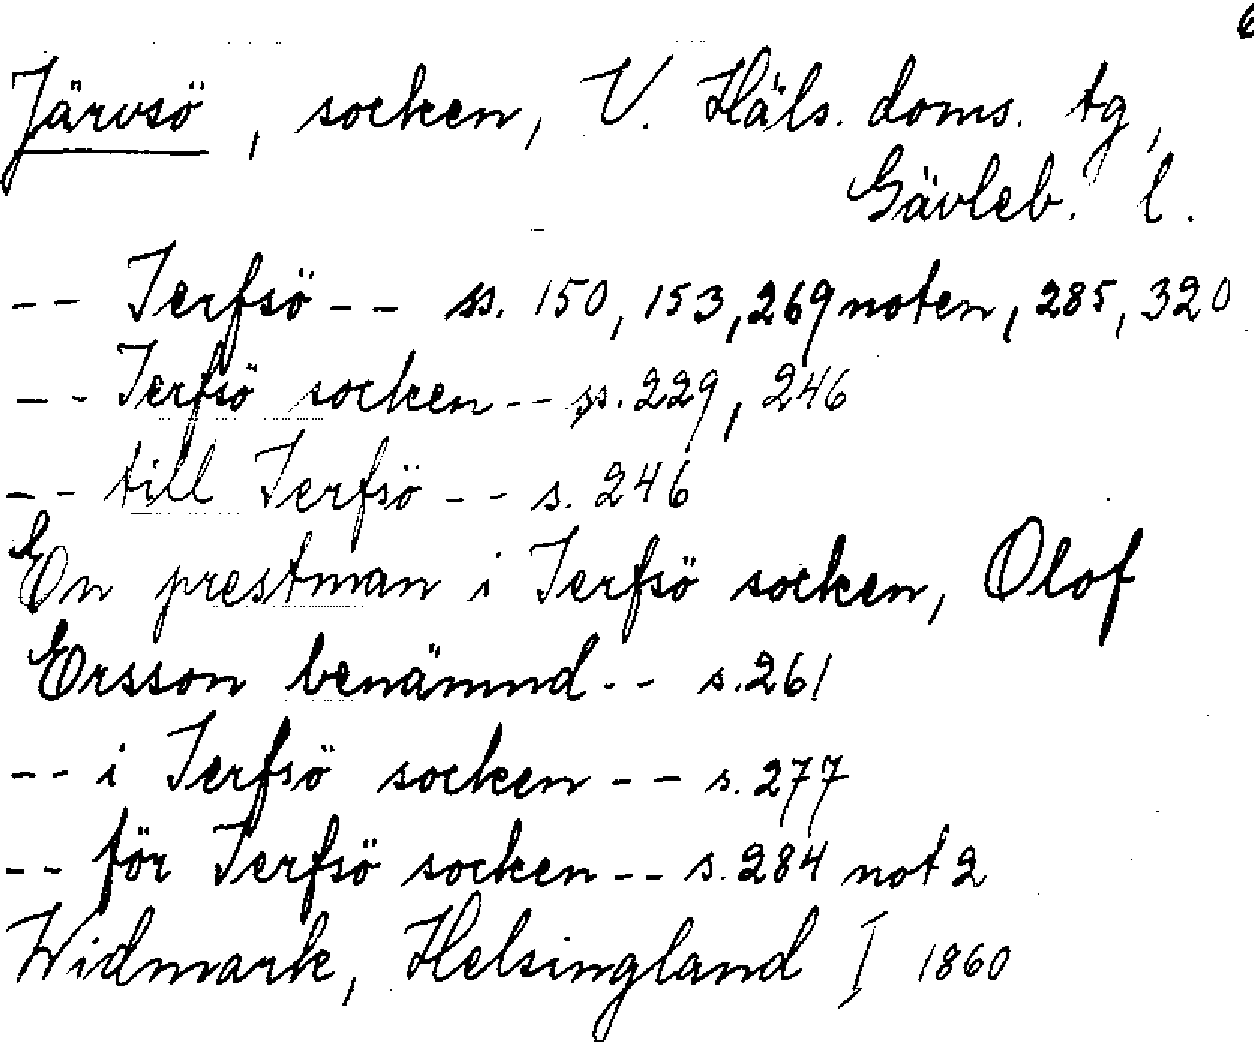 Järvsö, socken, V. Häls. doms. tg,
Gävleb. l.
-- Jerfsö -- ss. 150, 153, 269 noten, 285, 320
-- Jerfsö socken -- ss. 229, 246
-- till Jerfsö -- s. 246
En prestman i Jerfsö socken, Olof
Ersson benämnd -- s. 261
-- i Jerfsö socken -- s. 277
-- för Jerfsö socken -- s. 284 not 2
Widmark, Helsingland I 1860